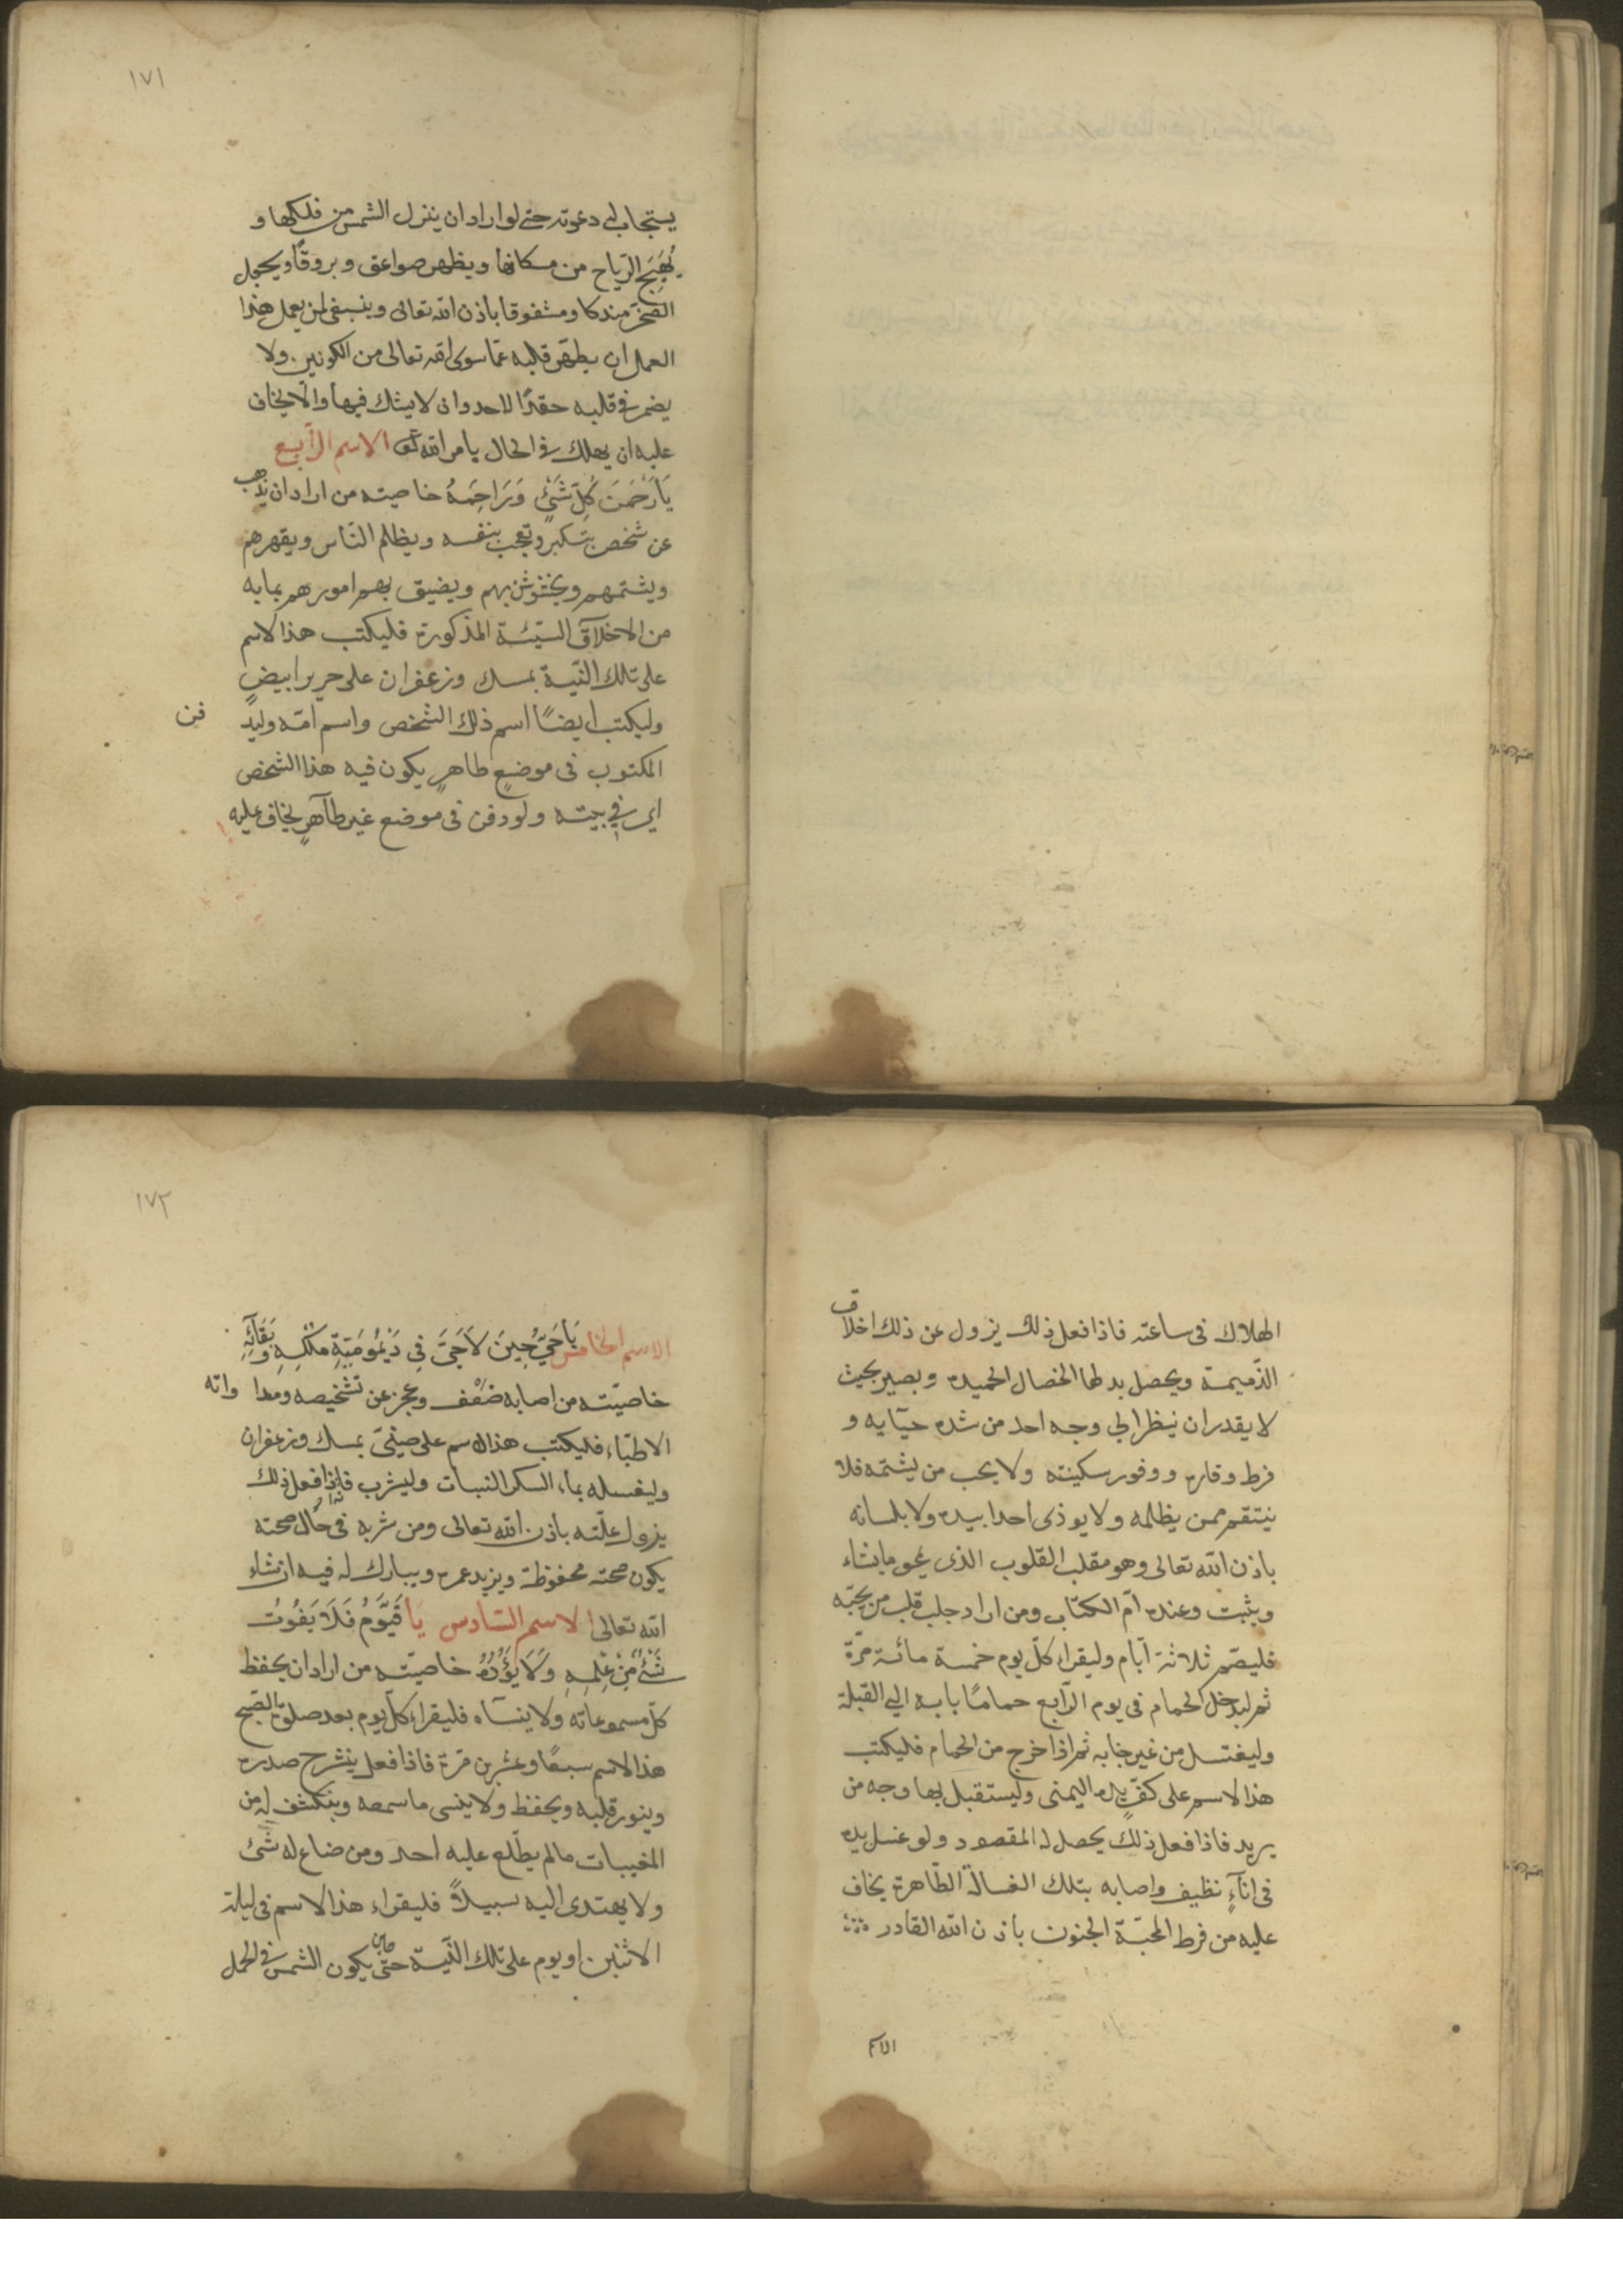 ١٧١
يستجاب له دعوته حتى لو اراد ان ينزل الشمس من فلكها و
يُهَيِّج الرّياح من مكانها ويظهر صواعق وبروقًا ويجعل
الصخرة مندكا ومشقوقا باذن الله تعالى وينبغى لمن يعمل هذا
العمل ان يطهّر قلبه عمّا سوى الله تعالى من الكونين ولا
يضمر فى قلبه حقدًا لاحد وان لا يشك فيها والّا يخاف
عليه ان يهلك فى الحال بامر الله تعـ الاسم الرّابع
يَا رَحْمَنَ كُلِّ شَىْءٍ وَرَاحِمَهُ خاصيته من اراد ان يذهب
عن شخص يتكبر وتعجب بنفسه ويظلم النّاس ويقهرهم
ويشتمهم بهم ويضيق بهم امورهم بما به
من الاخلاق السّيّئة المذكورة فليكتب هذا الاسم
على تلك النّيّة بمسك وزعفران على حرير ابيضٍ
وليكتب ايضًا اسم ذلك الشخص واسم امّه وليد
فن
المكتوب فى موضعٍ طاهرٍ يكون فيه هذا الشخص
اى فى بيته ولو دفن فى موضع غير طاهرٍ يخاف عليه
الهلاك فى ساعته فاذا فعل ذلك يزول عن ذلك اخلاق
الذّميمة ويحصل بدلها الخصال الحميدة ويصير بحيث
لا يقدر ان ينظر الى وجه احد من شدة حيآيه و
فرط وقاره ووفور سكينته ولا يجب من يشتمه فلا
ينتقم ممن يظلمه ولا يوذى احدا بيده ولا بلسانه
باذن الله تعالى وهو مقلب القلوب الذى يمحو ما يشاء
ويثبت وعنده امّ الكتاب ومن اراد جلب قلب من يحبّه
فليصم ثلاثة ايّام وليقراء كلّ يوم خمسة مائة مرّة
ثم ليدخل الحمام فى يوم الرّابع حمامًا بابه الى القبلة
وليغتسل من غير جنابه ثم اذا خرج من الحمام فليكتب
هذا الاسم على كفّ يده اليمنى وليستقبل بها وجه من
يريد فاذا فعل ذلك يحصل له المقصود ولو غسل يده
فى انآءٍ نظيف واصابه بتلك الغسالة الطّاهرة يخاف
عليه من فرط المحبّة الجنون باذن الله القادر
الاسم
١٧٢
الاسم الخامس يَا حَىُّ حِينَ لَا حَىَّ فِى دَيْمُومَيَّةِ مُلْكِهِ وَبَقَآئِهِ
خاصيّته من اصابه ضعف وعجز عن تشخيصه ومداواته
الاطبّاء فليكتب هذا الاسم على صينىّ بمسك وزعفران
وليغسله بماء السكر النبات وليشرب فاذا فعل ذلك
يزول علّته باذن الله تعالى ومن شربه فى حال صحته
يكون صحته محفوظة ويزيد عمره ويبارك له فيه ان شاء
الله تعالى الاسم السّادس يَا قَيُّومُ فَلَا يَفُوتُ
شَىْءٌ مِنْ عِلْمِهِ وَلَا يَؤُدُهُ خاصيّته من اراد ان يحفظ
كلّ مسموعاته ولا ينساه فليقراء كلّ يوم بعد صلوة الصّبح
هذا الاسم سبعًا وعشرين مرّة فاذا فعل ينشرح صدره
وينور قلبه ويحفظ ولا ينسى ما سمعه وينكشف له من
المغيبات ما لم يطّلع عليه احد ومن ضاع له شىء
ولا يهتدى اليه سبيلاً فليقراء هذا الاسم فى ليلة
الاثنين او يوم على تلك النّيّة حتى يكون الشمس فى الحمل